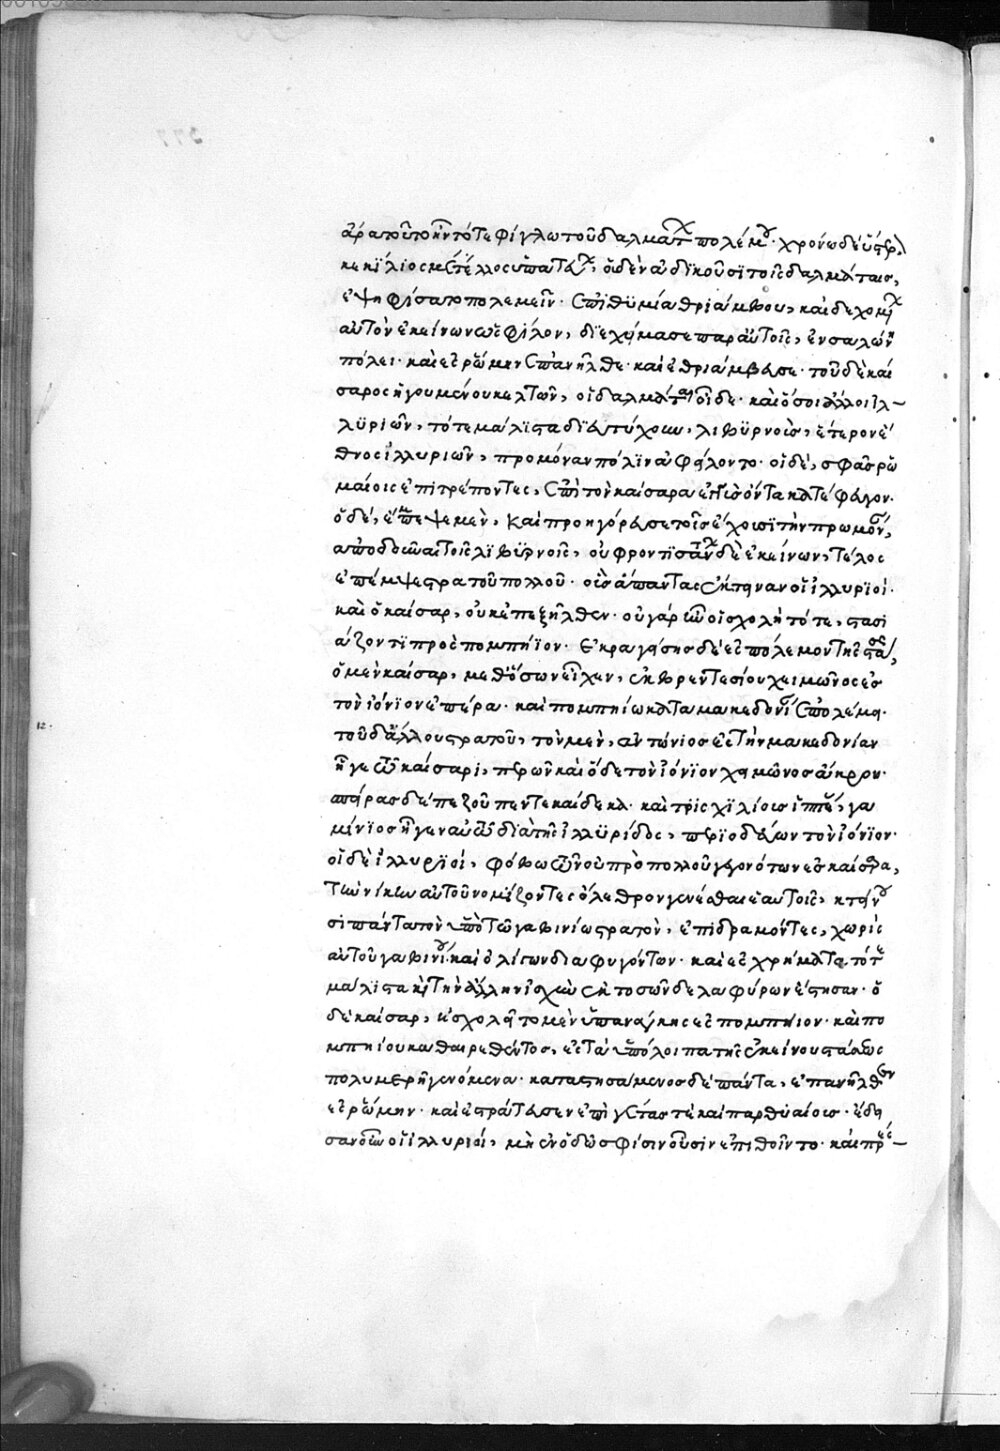 ἄρα τοῦτο ἦν τότε φίγλω τοῦ δαλματ πολέμου· χρόνω δὲ ὕστερ
κεκίλιος μέτέλλος ὑπατεύ, οὐδὲν ἀδικοῦσι τοῖς δαλμάταις,
ἐψηφίσατο πολεμεῖν· ἐπιθυμία θριάμβου, καὶ δεχομ
αὐτὸν ἐκείνων ὡς φίλον, διεχείμασε παρ' αὐτοῖς, ἐν σαλών
πόλει· καὶ ἐς ῥώμην ἐπανῆλθε· καὶ ἐθριάμβευσε· τοῦ δὲ καί
σαρος ἡγουμένου κελτῶν, οἱ δαλμάται οἵδε· καὶ ὅσοι ἄλλοι ἰλ
λυριῶν, τότε μάλιστα διευτύχουν, λιβυρνοὺς, ἕτερον ἔ
θνος ἰλλυριῶν, προμόναν πόλιν ἀφείλοντο· οἱ δὲ, σφᾶς ῥω
μαίοις ἐπιτρέποντες, ἐπὶ τὸν καίσαρα ἐγγὺς ὄντα κατέφευγον·
ὁ δέ, ἔπεμψε μὲν, καὶ προηγόρευσε τοῖς ἔχουσι τὴν πρωμόν,
ἀποδοῦναι τοῖς λιβυρνοῖς, οὐ φροντισάντων δὲ ἐκείνων, τέλος
ἔπεμψε στρατοῦ πολλοῦ· οὓς ἅπαντας ἔκτειναν οἱ ἰλλυριοί·
καὶ ὁ καίσαρ, οὐκ ἐπεξῆλθεν· οὐ γάρ ἦν οἱ σχολὴ τότε, στασι
άζοντι πρὸς πομπήϊον· ἐκραγείσης δὲ ἐς πόλεμον τῆς στάσε,
ὁ μὲν καίσαρ, μεθ' ὅσων εἶχεν, ἐκ βρεντεσίου χειμῶνος ἐς
τὸν ἰόνιον ἐπέρα· καὶ πομπηίω κατὰ μακεδονί ἐπολέμει·
τοῦ δ' ἄλλου στρατοῦ, τὸν μὲν, ἀντώνιος ἐς τὴν μακεδονίαν
ἦγε τῶ καίσαρι, περῶν καὶ ὅδε τὸν ἰόνιον χειμῶνος ἄκρου·
σπείρας δὲ πεζοῦ πεντεκαίδεκα· καὶ τρὶς χιλίους ἱππέ, γα
μίνιος ἦγεν αὐτῶ διὰ τῆς ἰλλυρίδος, περιοδεύων τὸν ἰόνιον·
οἱ δὲ ἰλλυριοί, φόβω τῶν οὐ πρὸ πολλοῦ γεγονότων ἐς καίσαρα,
τὴν νίκην αὐτοῦ νομίζοντες ὄλεθρον γενέσθαι ἑαυτοῖς, κτείνου
σι πάντα τὸν ὑπὸ τῶ γαβινίω στρατὸν, ἐπιδραμόντες, χωρὶς
αὐτοῦ γαβινίου καὶ ὀλίγων διαφυγόντων· καὶ ἐς χρήματα τότε
μάλιστα καὶ τὴν ἄλλην ἰσχὺν ἐκ τοσῶνδε λαφύρων ἔστησαν· ὁ
δὲ καίσαρ, ἠσχολεῖτο μὲν ὑπ' ἀνάγκης ἐς πομπήιον· καὶ πο
μπηίου καθαιρεθέντος, ἐς τὰ ὑπόλοιπα τῆς ἐκείνου στάσεως
πολυμερῆ γενόμενα· καταστησάμενος δὲ πάντα, ἐπανῆλθεν
ἐς ῥώμην· καὶ ἐστράτευσεν ἐπὶ γέτας τε καὶ παρθυαίους· ἔδει
σαν οὖν οἱ ἰλλυριοί, μὴ ἐν ὁδῶ σφίσιν οὖσιν ἐπιθοῖντο· καὶ πρέσ
12·